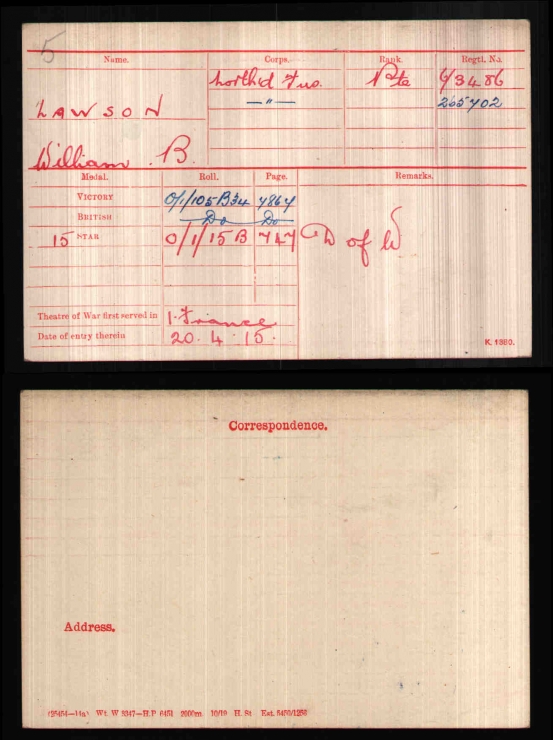 5
Name. Corps. Rank. Regtl. No.
North'd Fus. Pte 6/3486
LAWSON —"— 265702
William. B.
Medal. Roll. Page. Remarks.
VICTORY O/1/105B34 7864
BRITISH Do Do
15 STAR O/1/15B 747 D of W
Theatre of War first served in 1. France
Date of entry therein 20. 4. 15.
K. 1380.
Correspondence.
Address.
(25454—14a) Wt. W 3347—H.P 6451 2000m. 10/19 H. St Est. 5450/1250